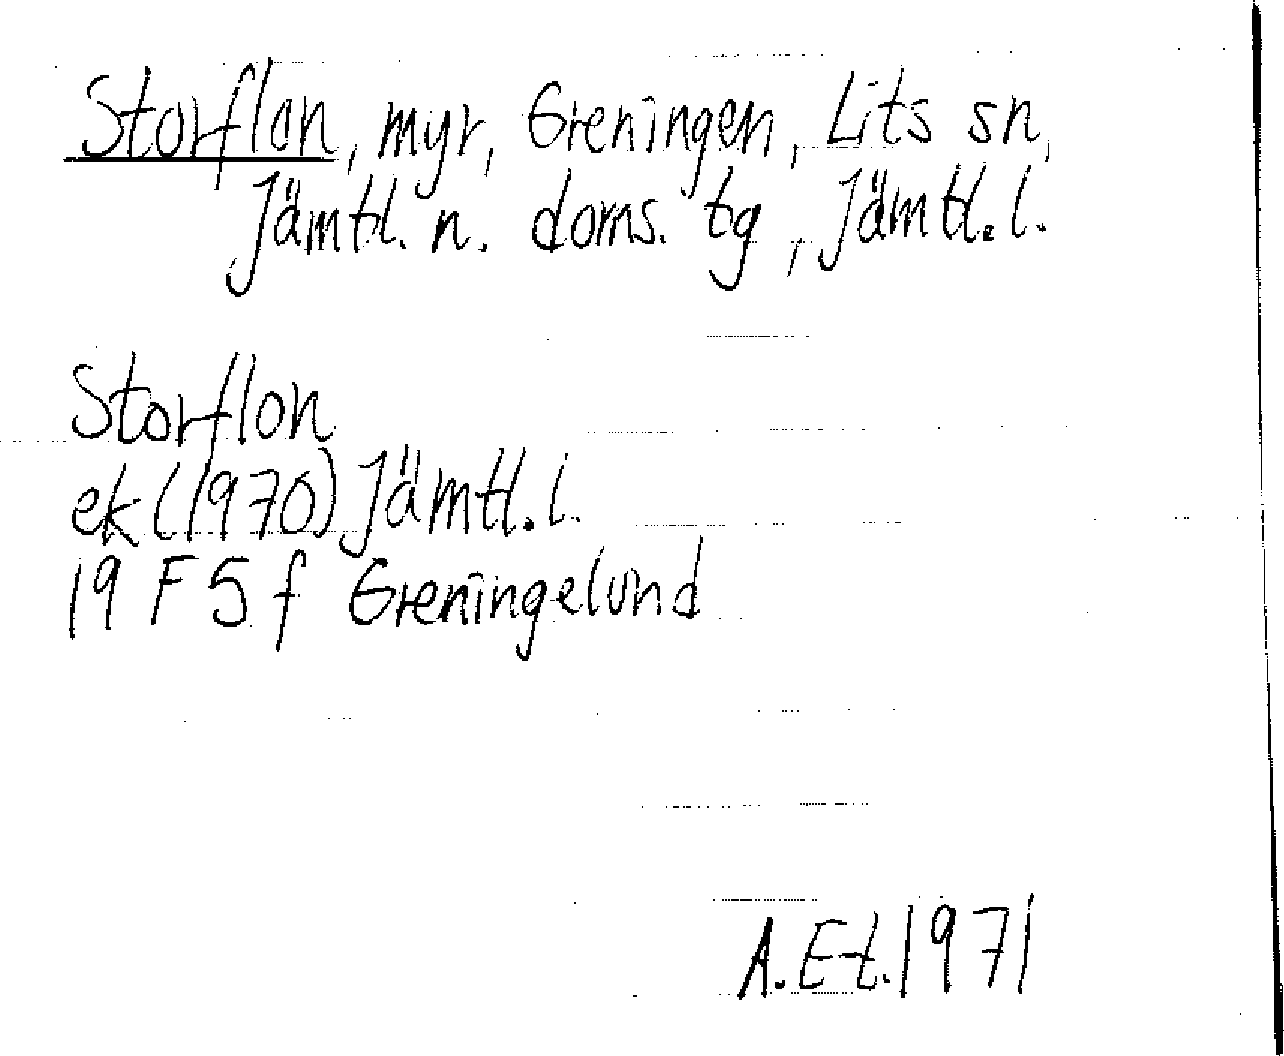 Storflon, myr, Greningen, Lits sn,
Jämtl. n. doms. tg, Jämtl. l.
Storflon
ek (1970) Jämtl. l.
19 F 5 f Greningelund
A. E-t. 1971